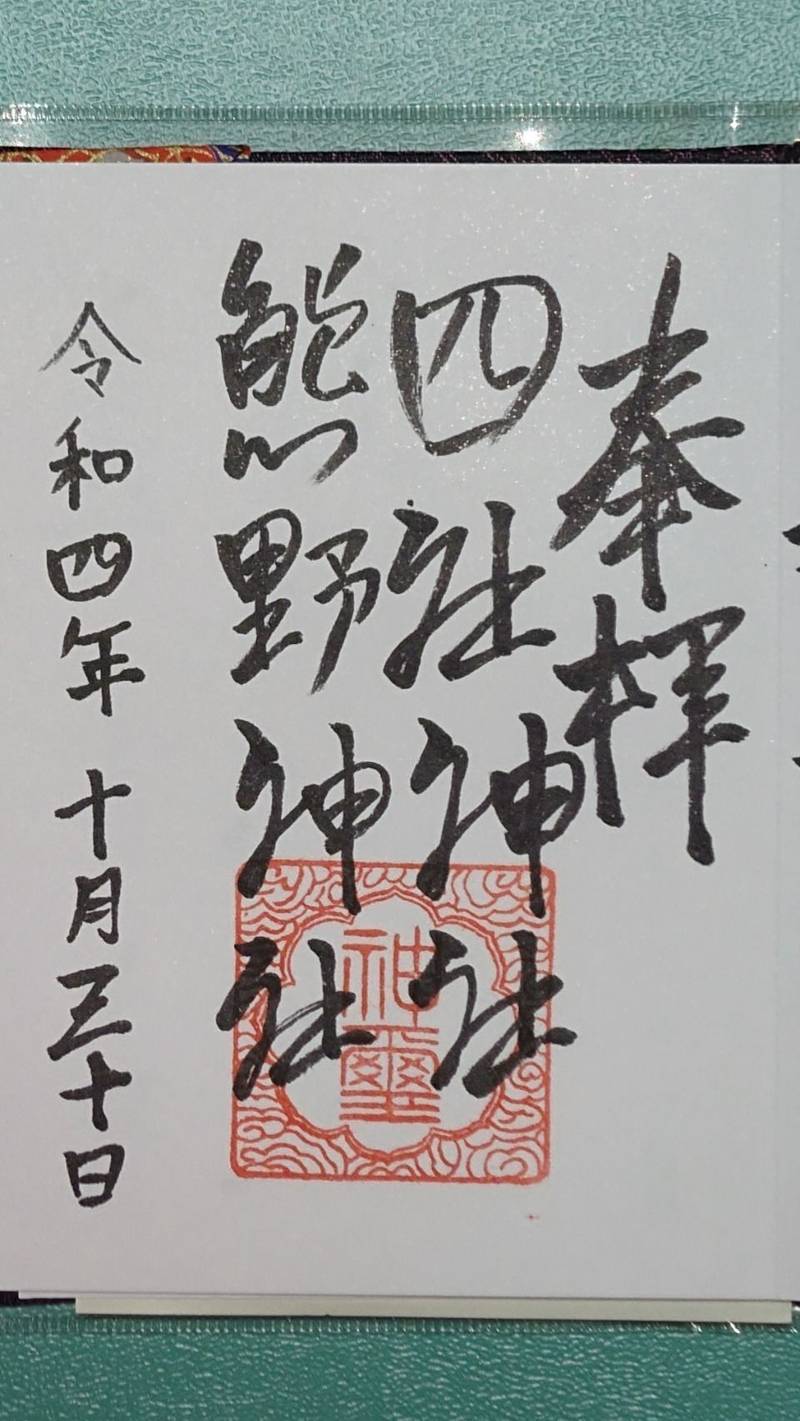 奉拝
四社神社
熊野神社
令和四年 十月三十日
神璽